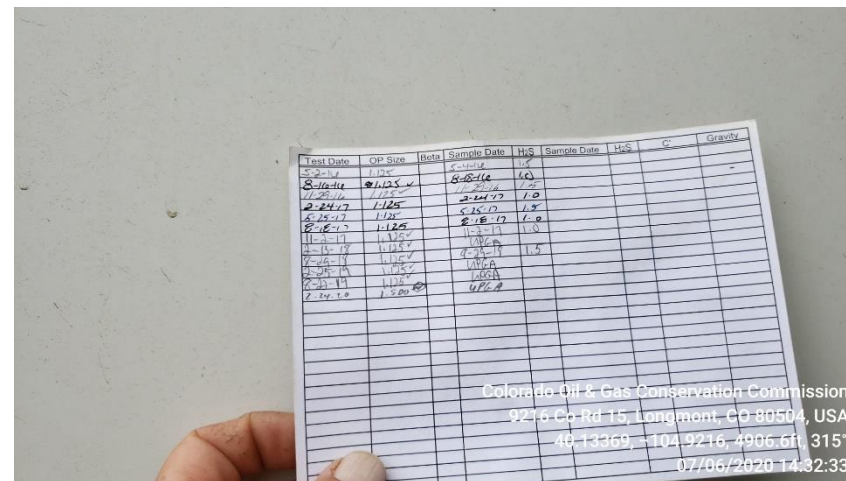 Test Date OP Size Beta Sample Date H2S Sample Date H2S C' Gravity
5-2-16 1.125 5-4-16 1.5
8-16-16 1.125 ✓ 8-18-16 1.0
11-29-16 1.125 ✓ 11-29-16 1.5
2-24-17 1.125 2-24-17 1.0
5-25-17 1.125 5-25-17 1.5
8-18-17 1.125 8-18-17 1.0
11-2-17 1.125 ✓ 11-2-17 1.0
2-13-18 1.125 ✓ UPGA
1.125 ✓ 1.5
2-25-19 1.125 ✓ UPGA
8-27-19 1.125 ✓ UPGA
1.500 UPGA
Colorado Oil & Gas Conservation Commission
9276 Co Rd 15, Longmont, CO 80504, USA
40.13369, -104.9216, 4906.6ft, 315°
07/06/2020 14:32:33